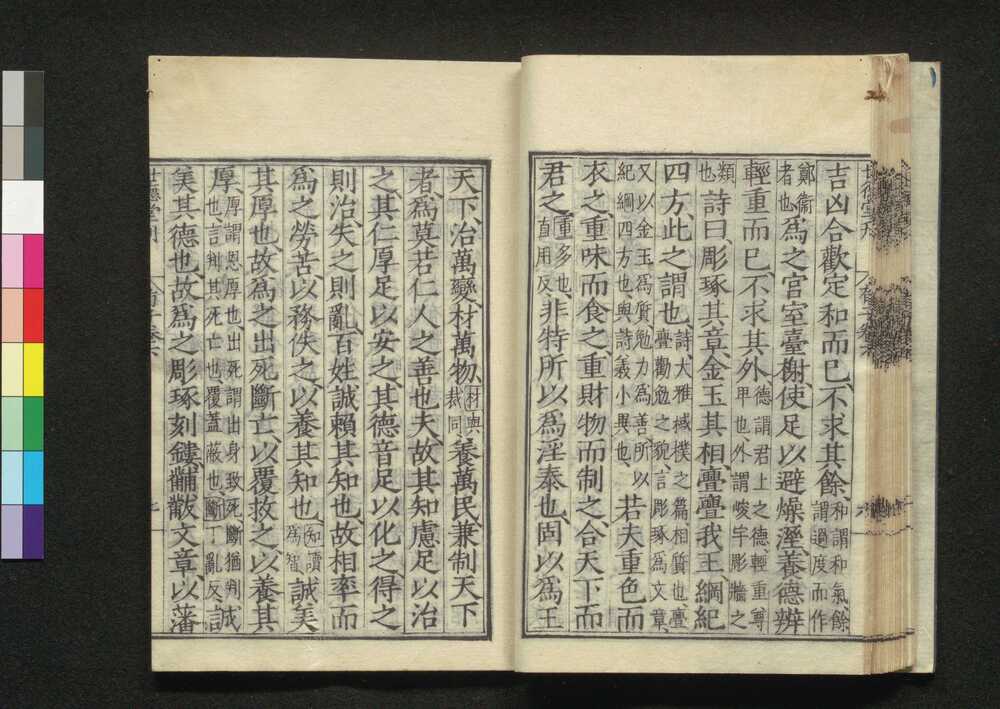 吉凶合歡定和而已、不求其餘、和謂和氣餘謂過度而作
鄭衛者也爲之宮室臺榭、使足以避燥溼、養德辨
輕重而已、不求其外、德謂君上之德、輕重尊
類也詩曰、彫琢其章、金玉其相、亹亹我王、綱紀
四方、此之謂也、詩大雅棫樸之篇相質也亹亹勸勉之貌、言彫琢爲文章、
又以金玉爲質勉力爲善、所以紀綱四方也與詩義小異也、若夫重色而
衣之、重味而食之、重財物而制之、合天下而
君之、重多也、直用反非特所以爲淫泰也、固以爲王
天下、治萬變、材萬物、材與裁同養萬民、兼制天下
者、爲莫若仁人之善也夫、故其知慮足以治
之、其仁厚足以安之、其德音足以化之、得之
則治、失之則亂、百姓誠賴其知也、故相率而
爲之勞苦以務佚之、以養其知也、知讀爲智誠美
其厚也、故爲之出死斷亡、以覆救之、以養其
厚、厚謂恩厚也、出死謂出身致死、斷猶判、言判其死亡也覆蓋蔽也、斷丁亂反誠
美其德也、故爲之彫琢刻鏤、黼黻文章、以藩
世德堂刊